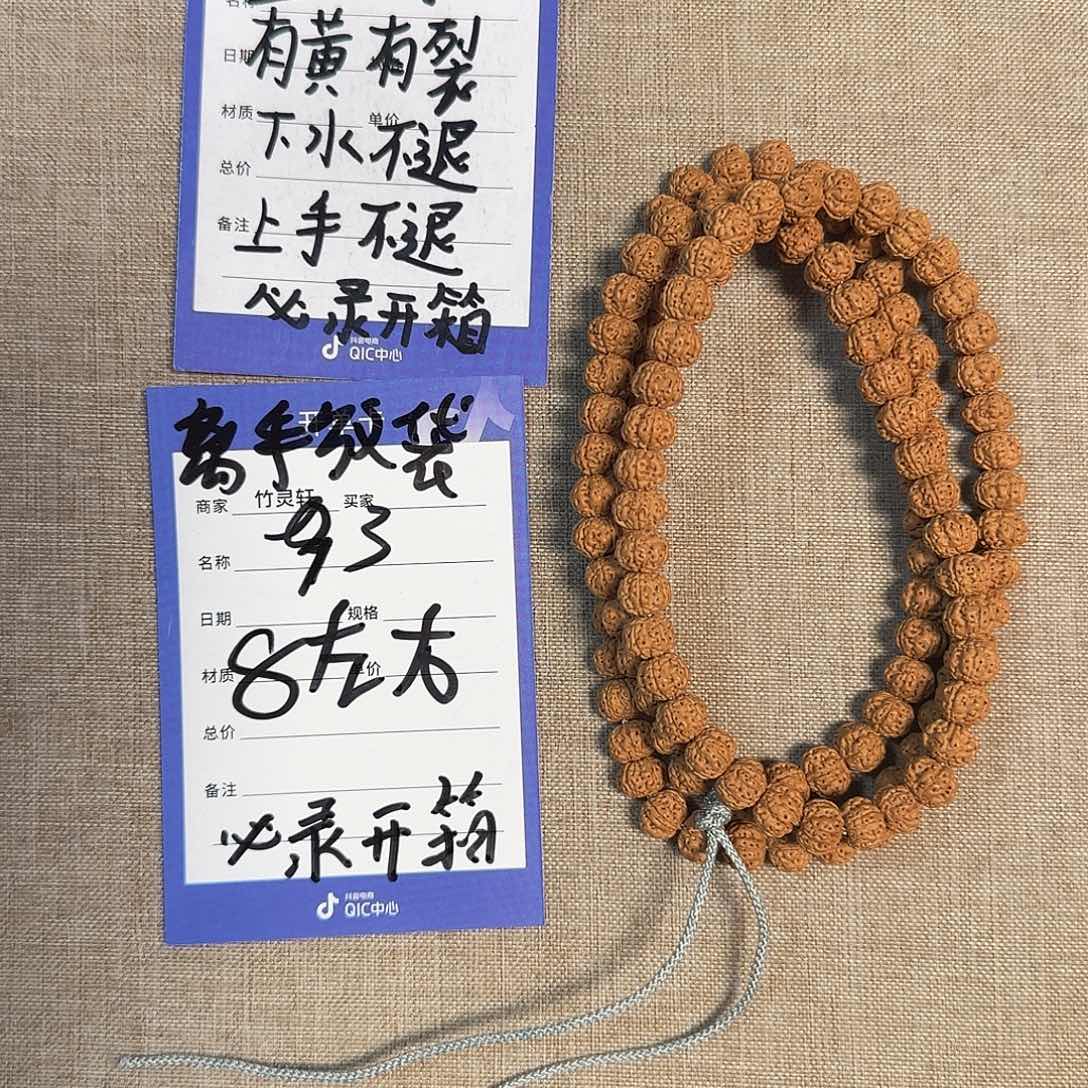 名称
有黄有裂
日期
材质 单价
下水不退
总价
备注
上手不退
必录开箱
抖音电商
QIC中心
离手级袋
商家 竹灵轩 买家
93
名称
日期 规格
8左右
材质 单价
总价
备注
必录开箱
抖音电商
QIC中心